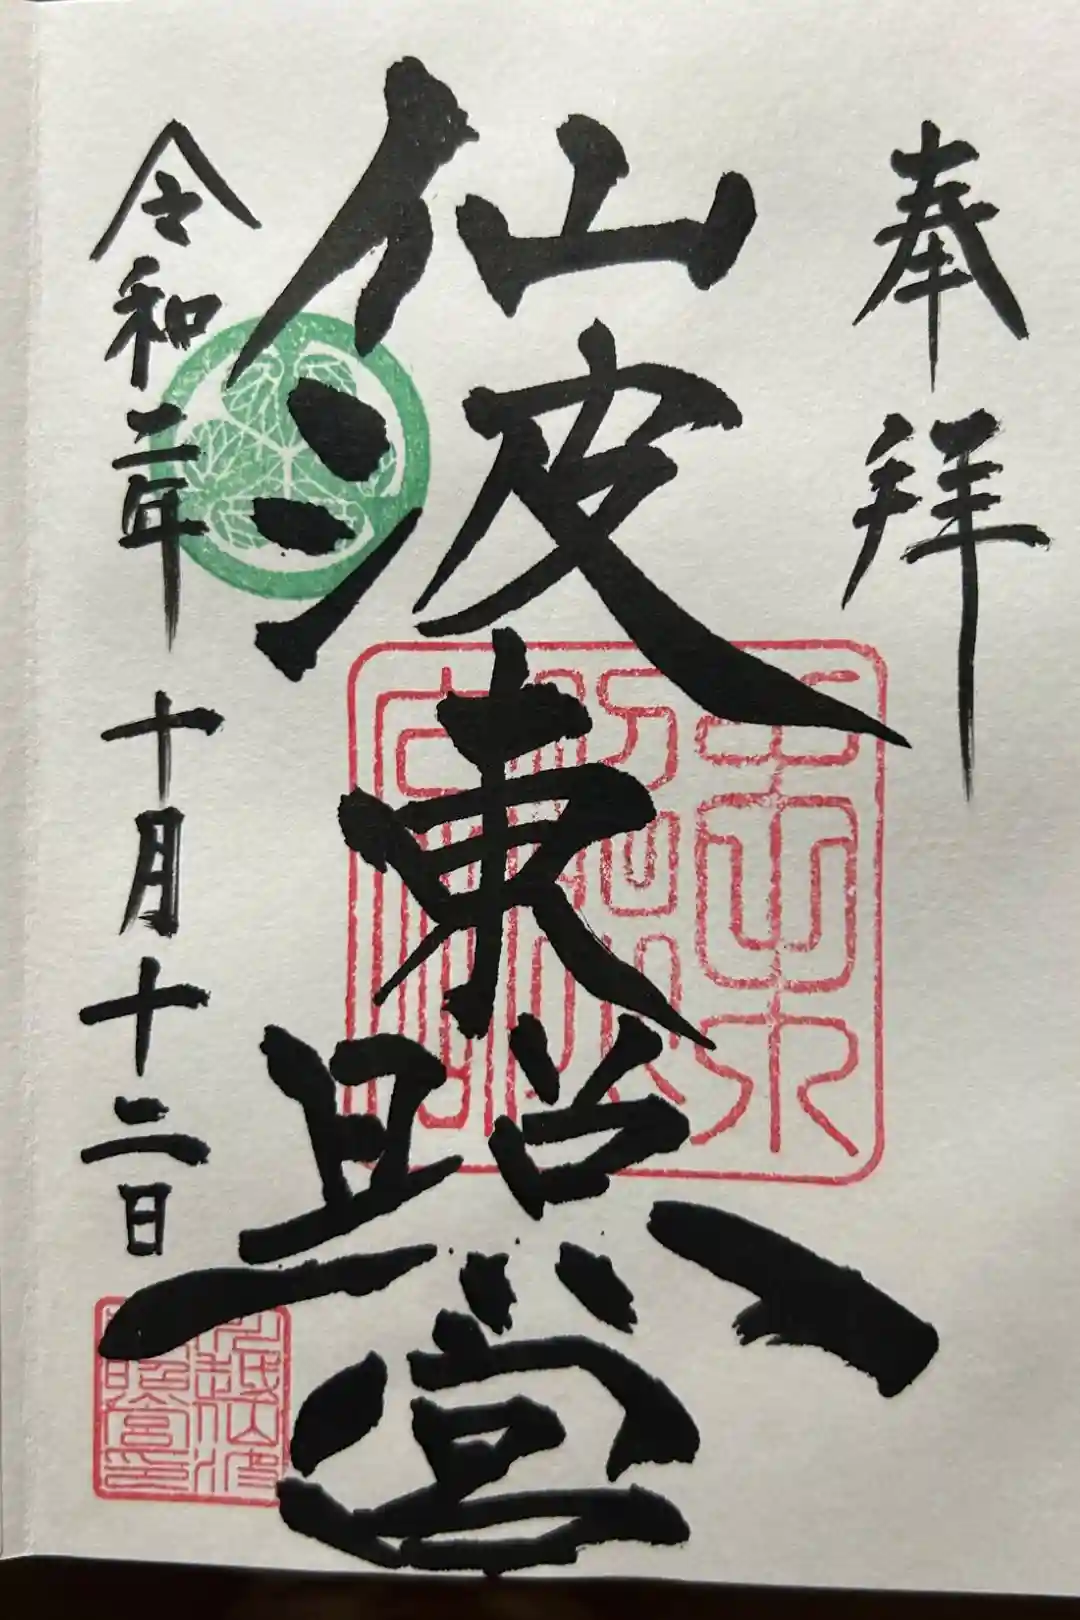 奉拝
仙波東照宮
令和二年十月十二日